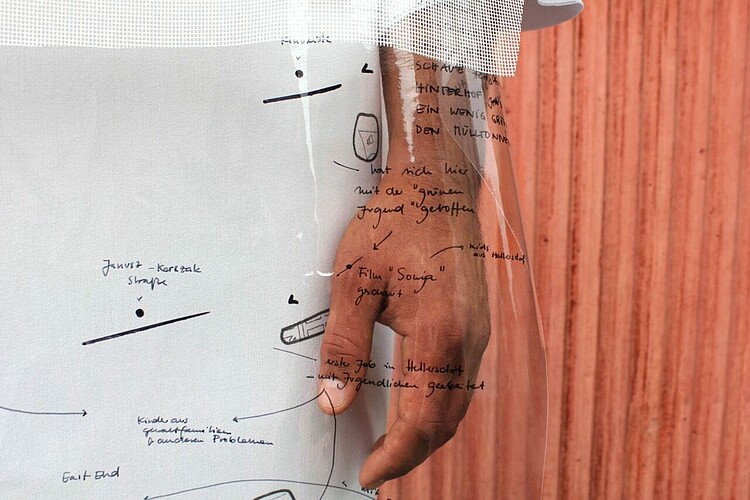 SCHAUT
HINTERHOF
EIN WENIG
DEN MÜLLTONNE
hat sich hier
mit der "grünen
Jugend" getroffen
kids
aus Hellersdorf
Film "Sonja"
gedreht
Janusz-Korczak
Straße
erste Job in Hellersdorf
– mit Jugendlichen gearbeitet
Kinder aus
gewaltfamilien
& anderen Problemen
East End